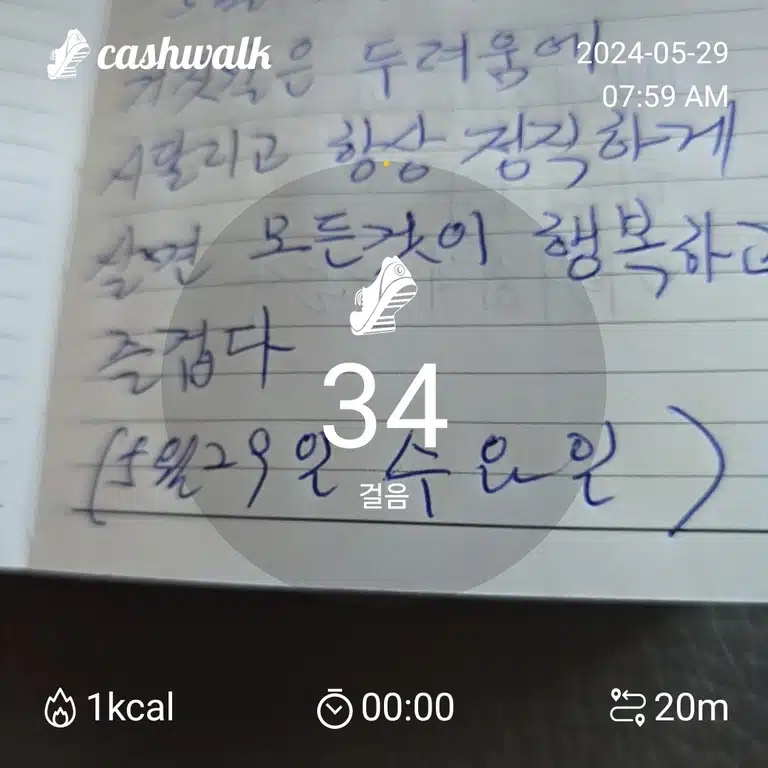 cashwalk
2024-05-29
07:59 AM
거짓은 두려움에
시달리고 항상 정직하게
살면 모든것이 행복하고
즐겁다
34
(5월29일 수요일)
걸음
1kcal
00:00
20m